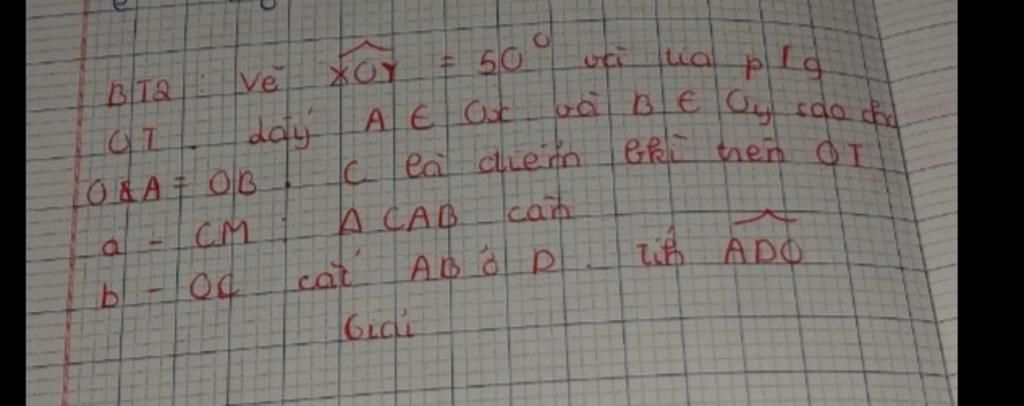 BT2: Vẽ xOy = 50° với tia p/g
OT. dấy A ∈ Ox và B ∈ Oy sao cho
OA = OB. C là điểm trên OT
a - CM: Δ CAB cân
b - OC cắt AB ở D. tính ADO
Giải